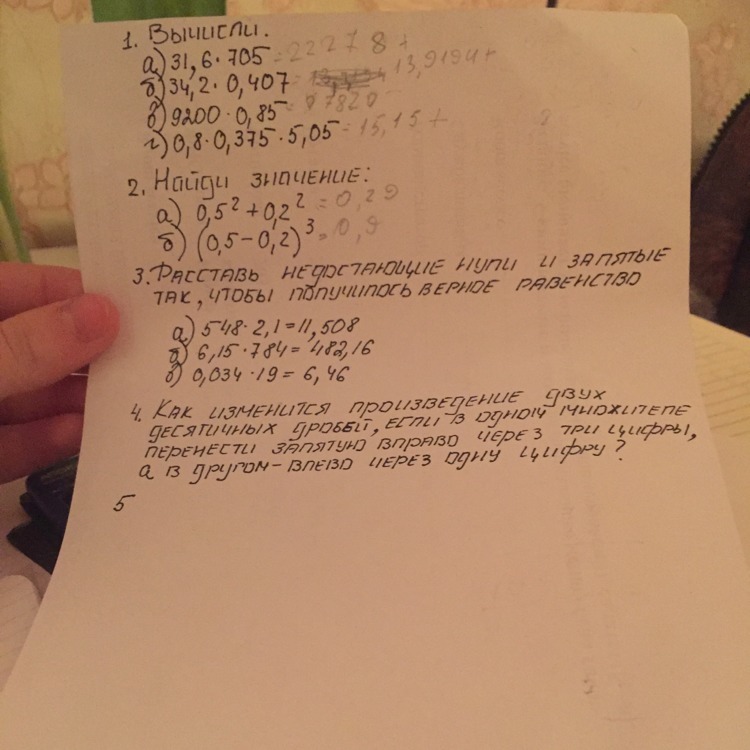 1. Вычисли.
а) 31,6·705 = 22278 +
б) 34,2·0,407 = 13,9194 +
в) 9200·0,85 = 07820
г) 0,8·0,375·5,05 = 15,15 +
2. Найди значение:
а) 0,5² + 0,2² = 0,29
б) (0,5 – 0,2)³ = 0,9
3. Расставь недостающие нули и запятые
так, чтобы получилось верное равенство
а) 548·2,1 = 11,508
б) 6,15·784 = 482,16
в) 0,034·19 = 6,46
4. Как изменится произведение двух
десятичных дробей, если в одном множителе
перенести запятую вправо через три цифры,
а в другом – влево через одну цифру?
5